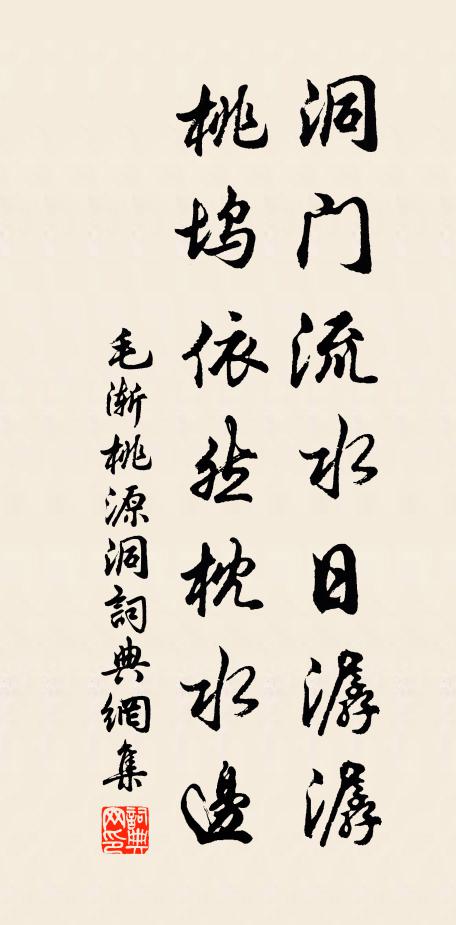 洞门流水日潺潺
桃坞依然枕水邊
毛渐桃源洞詞典網集
詞典网印